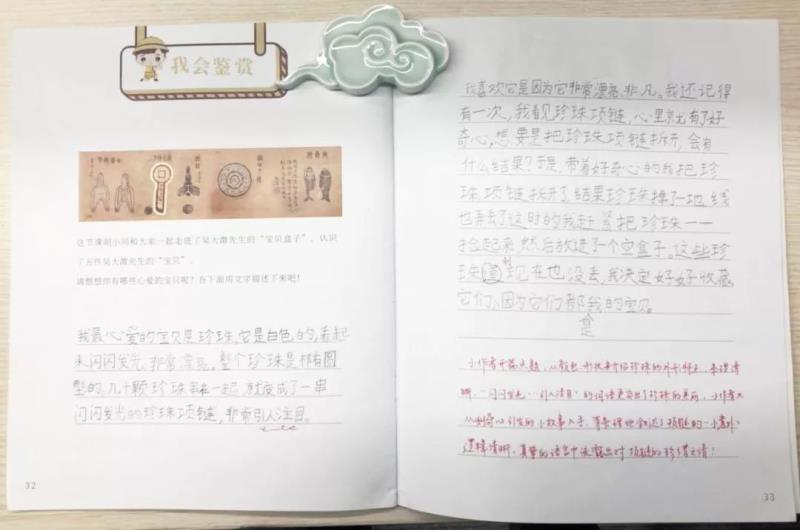 我会鉴赏
这节课胡小同和大家一起走进了吴大澂先生的“宝贝盒子”，认识
了五件吴大澂先生的“宝贝”。
请想想你有哪些心爱的宝贝呢？在下面用文字描述下来吧！
我最心爱的宝贝是珍珠,它是白色的,看起
来闪闪发光,非常漂亮。整个珍珠是椭圆
型的。几十颗珍珠串在一起,就变成了一串
闪闪发光的珍珠项链,非常引人注目。
32
我喜欢它是因为它非常漂亮非凡。我还记得
有一次,我看见珍珠项链,心里就有了好
奇心,想要是把珍珠项链拆开,会有
什么结果?于是,带着好奇心的我把珍
珠项链拆开了,结果珍珠掉了一地,线
也弄丢了,这时的我赶紧把珍珠一一
捡起来,然后放进了个空盒子。这些珍
珠到现在也没丢,我决定好好收藏
它们,因为它们都是我的宝贝。
小作者开篇点题，从颜色、形状来介绍珍珠的外形特点，条理清
晰，“闪闪发光”“引人注目”的词语更突出了珍珠的美丽，小作者又
从好奇心引发的小故事入手，
逻辑清晰，真挚的语言中流露出对项链的珍惜之情！
33